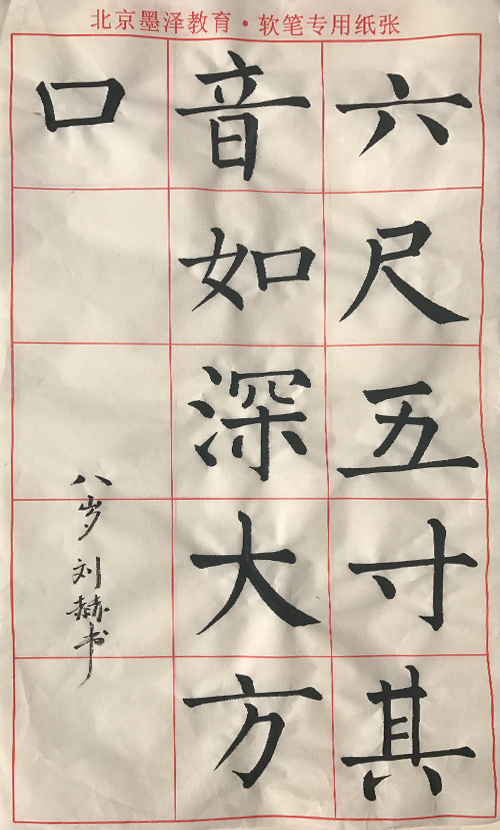 北京墨泽教育·软笔专用纸张
六尺五寸其
音如深大方
口
八岁刘赫书